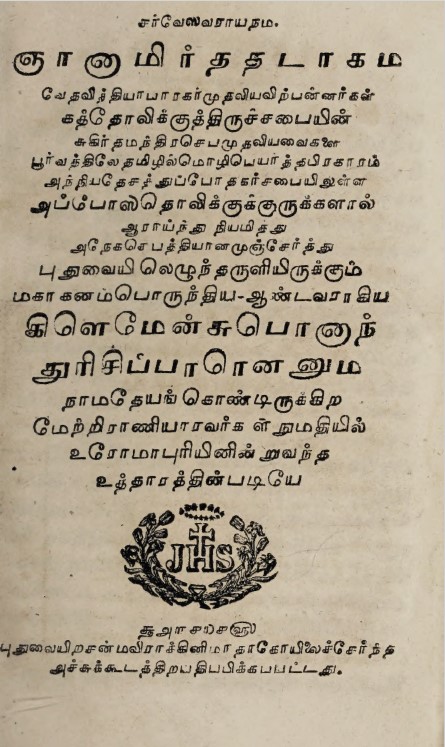 சர்வேஸவராயநம.
ஞானாமிர்ததடாகம
வேதவித்தியாபாரகர்முதலியவிற்பன்னர்கள்
கத்தோலிக்குத்திருச்சபையின்
சுகிர்தமந்திரசெபமுதலியவைகளை
பூர்வத்திலேதமிழில்மொழிபெயர்த்தபிரகாரம்
அந்நியதேசத்துப்போதகர்சபையிலுள்ள
அப்போஸ்தொலிக்குக்குருக்களால்
ஆராய்ந்து நியமித்து
அநேகசெபத்தியானமுஞ்சேர்த்து
புதுவையி லெழுந்தருளியிருக்கும்
மகாகனம்பொருந்திய-ஆண்டவராகிய
கிளெமேன்சுபொனாந்
துரிசிப்பாரொனனும
நாமதேயங்கொண்டிருக்கிற
மேற்றிராணியாரவர்க ள்நுமதியில்
உரோமாபுரியினின் றுவந்த
உத்தாரத்தின்படியே
JHS
புதுவையிறசன்மவிராக்கினிமாதாகோயிலைச்சேர்ந்த
அச்சுக்கூடத்திறபதிபபிக்கபபட்டது.